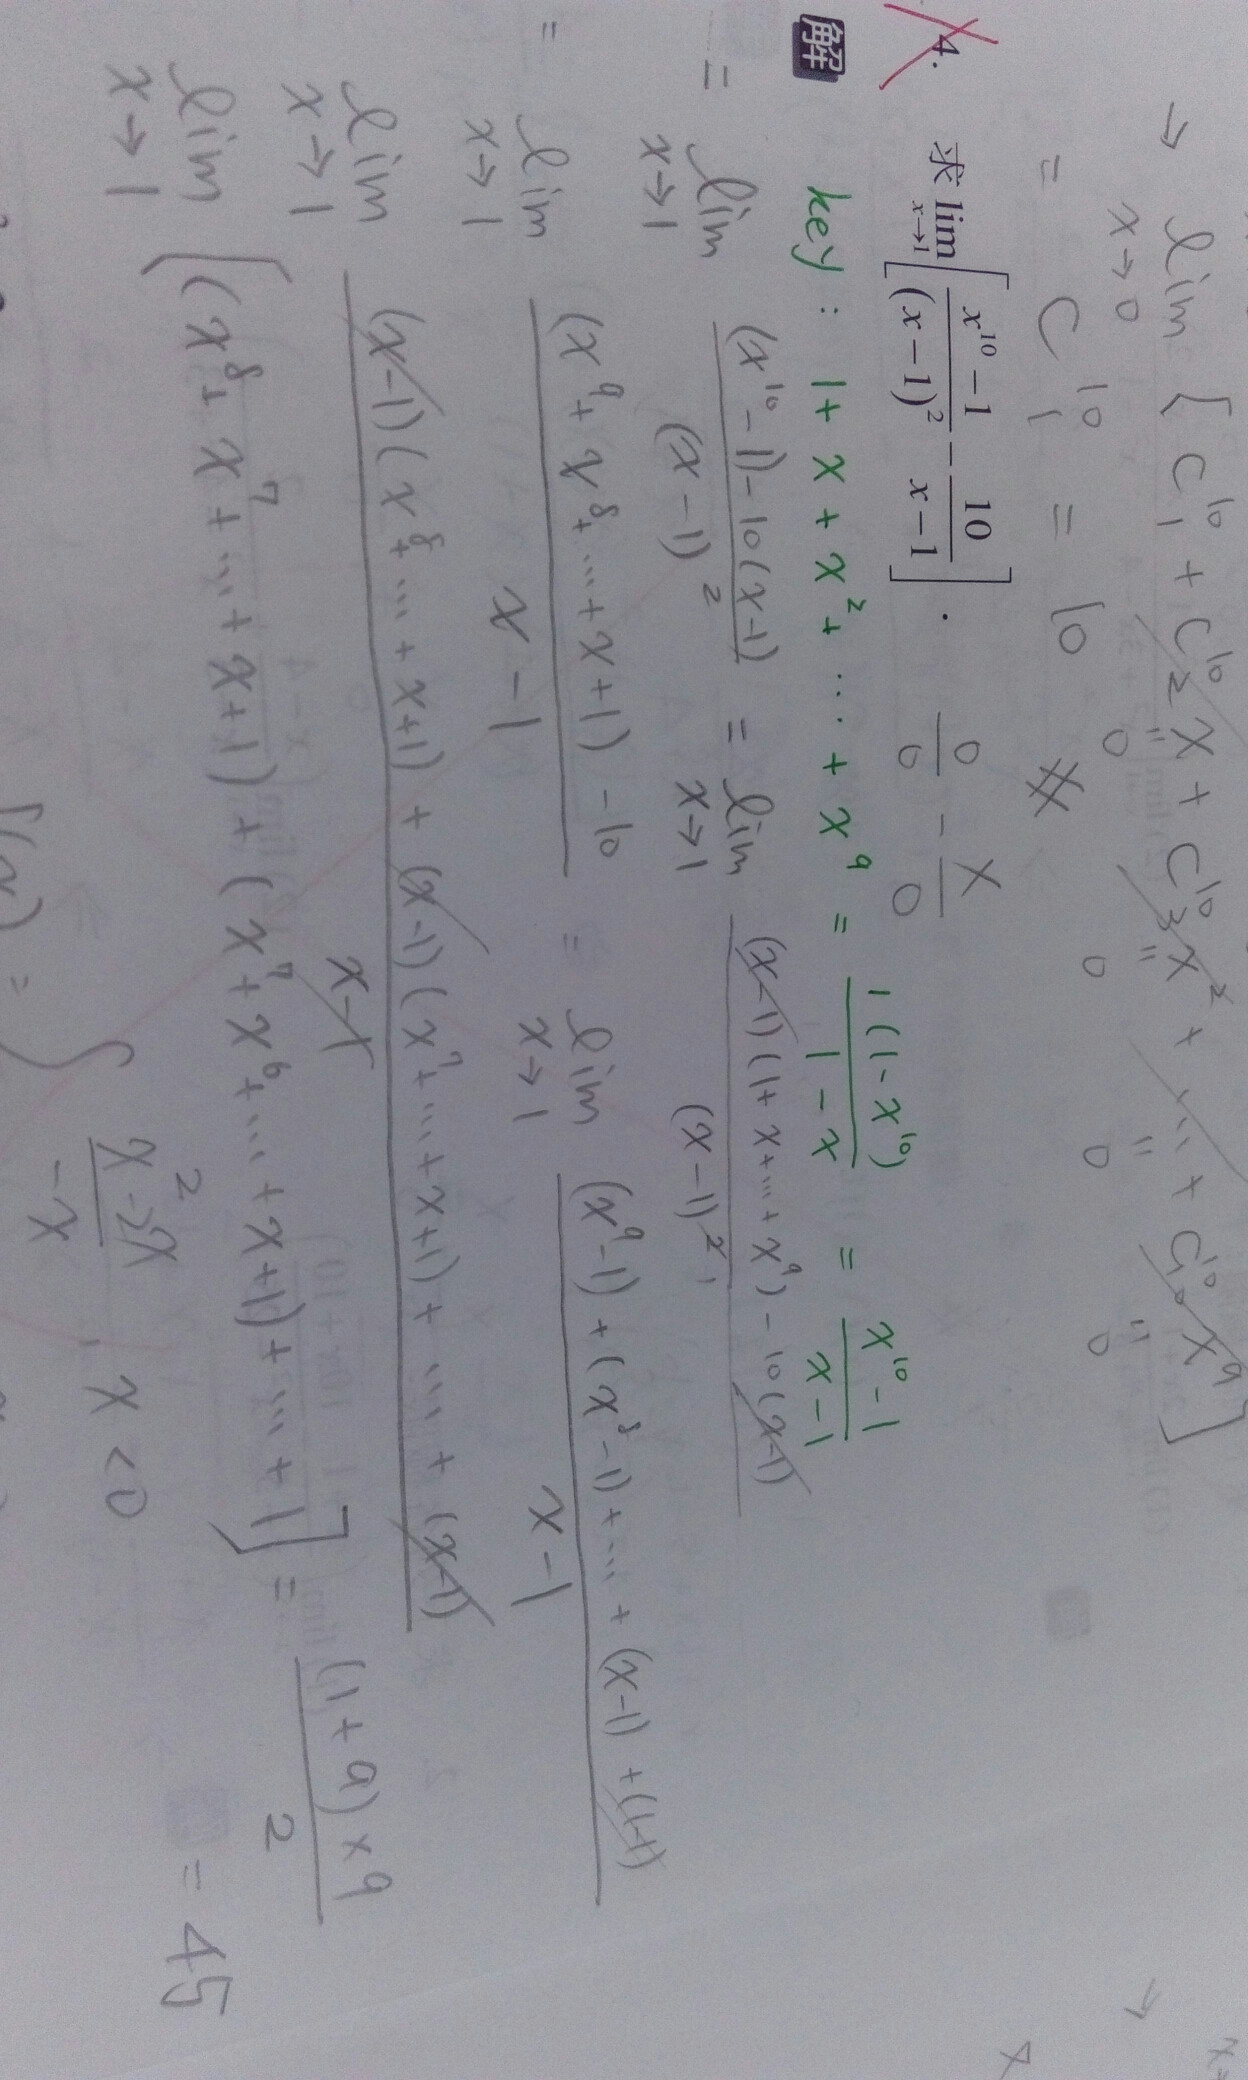 → lim x→0 [C₁¹⁰ + C₂¹⁰x + C₃¹⁰x² + ... + C₁₀¹⁰x⁹]
" 0 " 0 " 0 " 0
= C₁¹⁰ = 10 #
4. 求 lim x→1 [(x¹⁰−1)/(x−1)² − 10/(x−1)].
0/0 − x/0
解 key : 1 + x + x² + ... + x⁹ = 1(1−x¹⁰)/(1−x) = (x¹⁰−1)/(x−1)
= lim x→1 ((x¹⁰−1)−10(x−1))/(x−1)² = lim x→1 ((x−1)(1+x+...+x⁹)−10(x−1))/(x−1)²
= lim x→1 ((x⁹+x⁸+...+x+1)−10)/(x−1) = lim x→1 ((x⁹−1)+(x⁸−1)+...+(x−1)+(1−1))/(x−1)
lim x→1 ((x−1)(x⁸+...+x+1)+(x−1)(x⁷+...+x+1)+...+(x−1))/(x−1)
lim x→1 [(x⁸+x⁷+...+x+1)+(x⁷+x⁶+...+x+1)+...+1] = ((1+9)×9)/2 = 45
(x²−2x)/(−x) , x<0